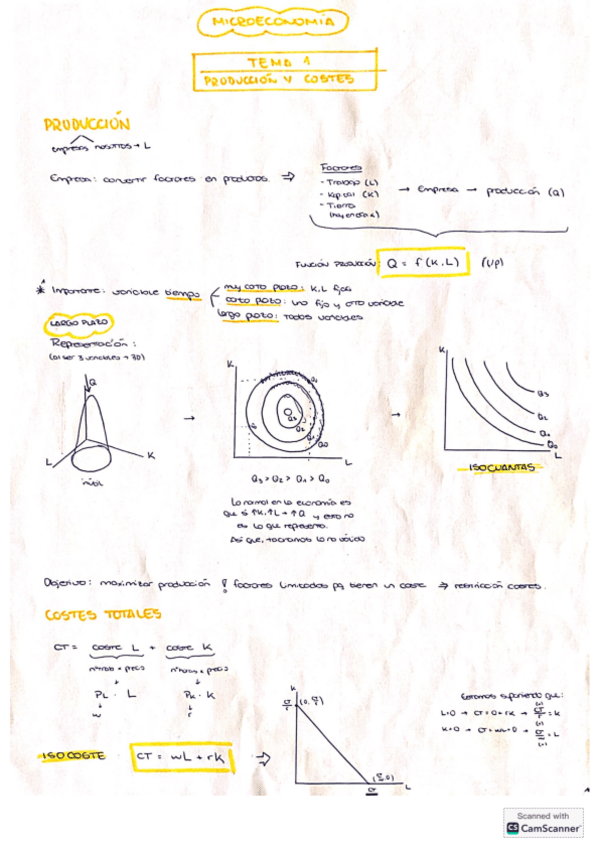 MICROECONOMÍA
TEMA 1
PRODUCCIÓN Y COSTES
PRODUCCIÓN
empresas nosotros → L
Empresa: convertir factores en productos. ⇒
Factores
- Trabajo (L)
- Kapital (K)
- Tierra
→ Empresa → producción (Q)
FUNCIÓN PRODUCCIÓN: Q = f (K, L) (L/P)
* Importante: variable tiempo
muy corto plazo: K, L fijos
corto plazo: uno fijo y otro variable
largo plazo: todos variables
LARGO PLAZO
Representación:
(al ser 3 variables → 3D)
Q
L
K
→
K
Q3
Q2
Q1
Q0
L
Q3 > Q2 > Q1 > Q0
→
K
Q3
Q2
Q1
Q0
L
ISOCUANTAS
Lo normal en la economía es
que si ↑K, ↑L → ↑Q y esto no
es lo que representa.
Así que, tachamos lo no válido
Objetivo: maximizar producción ! factores limitados pq tienen un coste ⇒ restricción costes.
COSTES TOTALES
CT = coste L + coste K
PL · L
PK · K
w
r
ISOCOSTE CT = wL + rK ⇒
K
CT/r (0, CT/r)
L
Estamos suponiendo que:
L=0 → CT = 0 + rK → CT/r = K
K=0 → CT = wL + 0 → CT/w = L
Scanned with
CS CamScanner